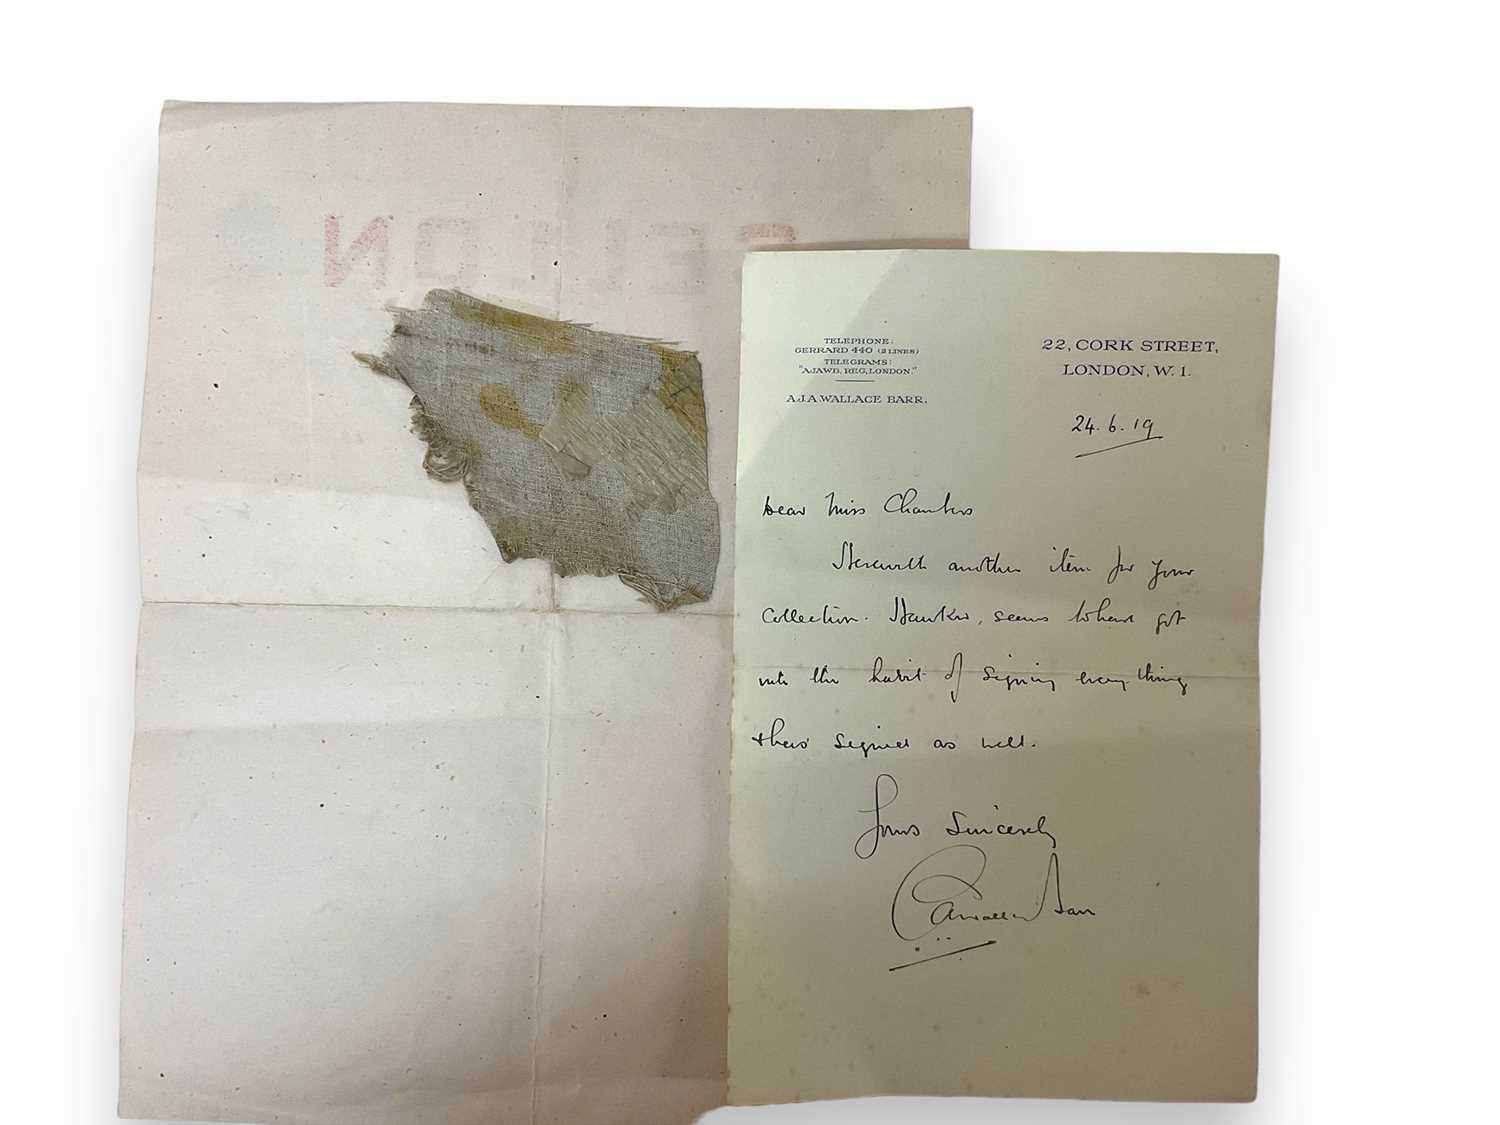 TELEPHONE:
GERRARD 440 (2 LINES)
TELEGRAMS:
"AJAWB, REG, LONDON."
A.J.A WALLACE BARR.
22, CORK STREET,
LONDON, W. 1.
24. 6. 19
Dear Miss Chambers
Herewith another item for your
Collection. Hawker, seems to have got
into the habit of signing every thing
signed as well.
Yours Sincerely